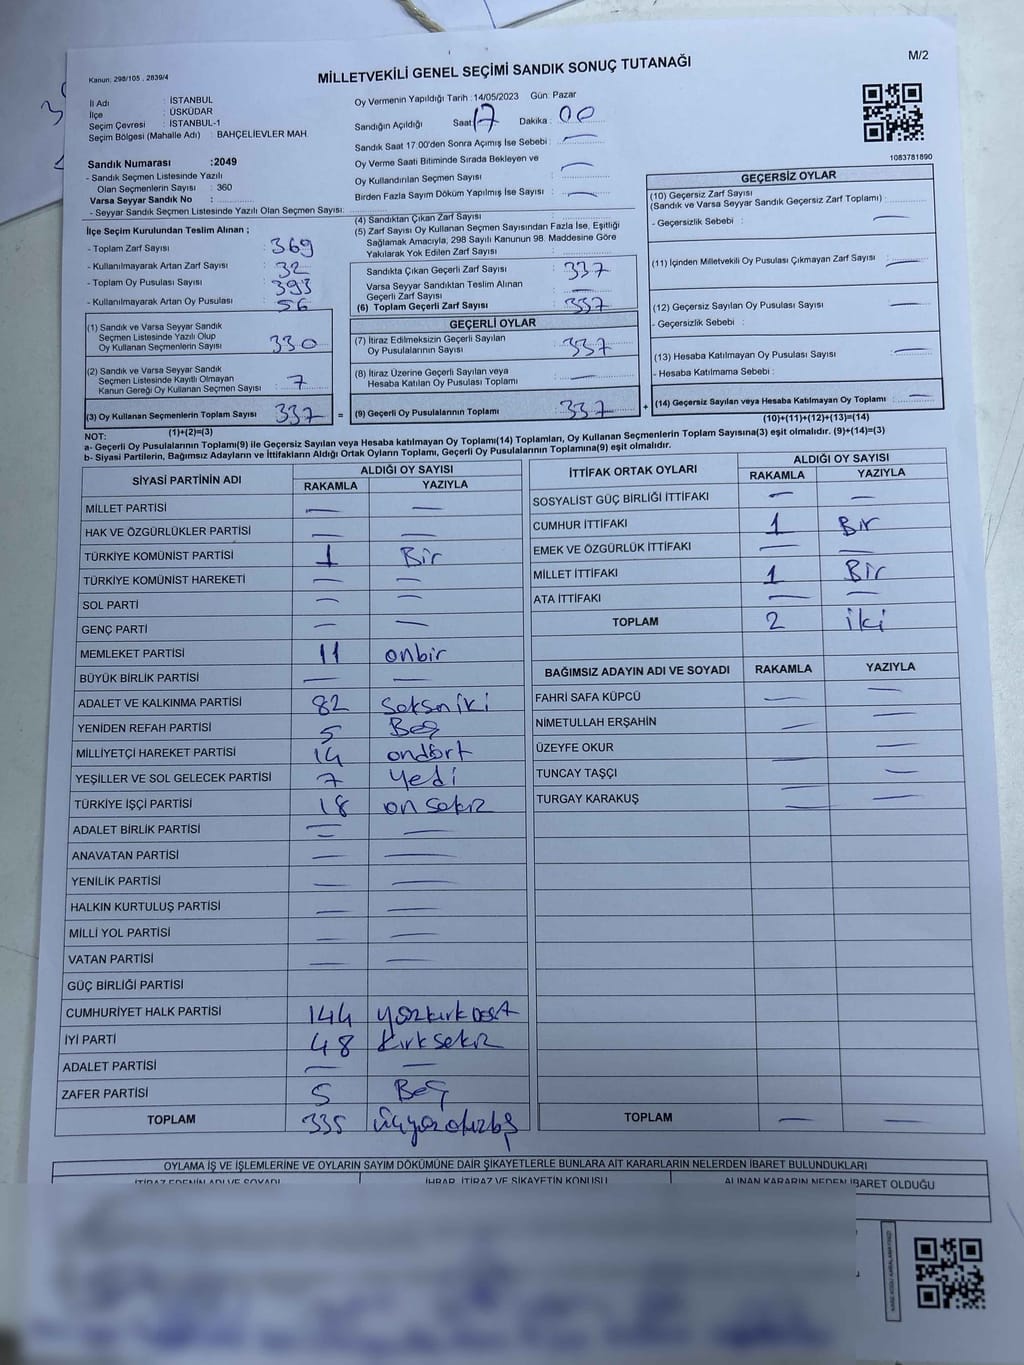 Kanun: 298/105 , 2839/4
MİLLETVEKİLİ GENEL SEÇİMİ SANDIK SONUÇ TUTANAĞI
M/2
İl Adı : İSTANBUL
İlçe : ÜSKÜDAR
Seçim Çevresi : İSTANBUL-1
Seçim Bölgesi (Mahalle Adı) : BAHÇELİEVLER MAH.
Sandık Numarası :2049
- Sandık Seçmen Listesinde Yazılı
Olan Seçmenlerin Sayısı : 360
Varsa Seyyar Sandık No :
- Seyyar Sandık Seçmen Listesinde Yazılı Olan Seçmen Sayısı:
Oy Vermenin Yapıldığı Tarih : 14/05/2023 Gün: Pazar
Sandığın Açıldığı Saat: 17 Dakika : 00
Sandık Saat 17:00'den Sonra Açılmış İse Sebebi : —
Oy Verme Saati Bitiminde Sırada Bekleyen ve
Oy Kullandırılan Seçmen Sayısı : —
Birden Fazla Sayım Döküm Yapılmış İse Sayısı : —
1083781890
İlçe Seçim Kurulundan Teslim Alınan ;
- Toplam Zarf Sayısı : 369
- Kullanılmayarak Artan Zarf Sayısı : 32
- Toplam Oy Pusulası Sayısı : 393
- Kullanılmayarak Artan Oy Pusulası : 56
(1) Sandık ve Varsa Seyyar Sandık
Seçmen Listesinde Yazılı Olup
Oy Kullanan Seçmenlerin Sayısı : 330
(2) Sandık ve Varsa Seyyar Sandık
Seçmen Listesinde Kayıtlı Olmayan
Kanun Gereği Oy Kullanan Seçmen Sayısı : 7
(3) Oy Kullanan Seçmenlerin Toplam Sayısı : 337 =
(1)+(2)=(3)
(4) Sandıktan Çıkan Zarf Sayısı :
(5) Zarf Sayısı Oy Kullanan Seçmen Sayısından Fazla İse, Eşitliği
Sağlamak Amacıyla, 298 Sayılı Kanunun 98. Maddesine Göre
Yakılarak Yok Edilen Zarf Sayısı :
Sandıkta Çıkan Geçerli Zarf Sayısı : 337
Varsa Seyyar Sandıktan Teslim Alınan
Geçerli Zarf Sayısı : —
(6) Toplam Geçerli Zarf Sayısı : 337
GEÇERLİ OYLAR
(7) İtiraz Edilmeksizin Geçerli Sayılan
Oy Pusulalarının Sayısı : 337
(8) İtiraz Üzerine Geçerli Sayılan veya
Hesaba Katılan Oy Pusulası Toplamı : —
(9) Geçerli Oy Pusulalarının Toplamı : 337 +
GEÇERSİZ OYLAR
(10) Geçersiz Zarf Sayısı
(Sandık ve Varsa Seyyar Sandık Geçersiz Zarf Toplamı) :
- Geçersizlik Sebebi : —
(11) İçinden Milletvekili Oy Pusulası Çıkmayan Zarf Sayısı : —
(12) Geçersiz Sayılan Oy Pusulası Sayısı : —
- Geçersizlik Sebebi :
(13) Hesaba Katılmayan Oy Pusulası Sayısı : —
- Hesaba Katılmama Sebebi :
(14) Geçersiz Sayılan veya Hesaba Katılmayan Oy Toplamı : —
(10)+(11)+(12)+(13)=(14)
NOT:
a- Geçerli Oy Pusulalarının Toplamı(9) ile Geçersiz Sayılan veya Hesaba katılmayan Oy Toplamı(14) Toplamları, Oy Kullanan Seçmenlerin Toplam Sayısına(3) eşit olmalıdır. (9)+(14)=(3)
b- Siyasi Partilerin, Bağımsız Adayların ve İttifakların Aldığı Ortak Oyların Toplamı, Geçerli Oy Pusulalarının Toplamına(9) eşit olmalıdır.
SİYASİ PARTİNİN ADI ALDIĞI OY SAYISI
RAKAMLA YAZIYLA
MİLLET PARTİSİ — —
HAK VE ÖZGÜRLÜKLER PARTİSİ — —
TÜRKİYE KOMÜNİST PARTİSİ 1 Bir
TÜRKİYE KOMÜNİST HAREKETİ — —
SOL PARTİ — —
GENÇ PARTİ — —
MEMLEKET PARTİSİ 11 onbir
BÜYÜK BİRLİK PARTİSİ — —
ADALET VE KALKINMA PARTİSİ 82 Seksen iki
YENİDEN REFAH PARTİSİ 5 Beş
MİLLİYETÇİ HAREKET PARTİSİ 14 ondört
YEŞİLLER VE SOL GELECEK PARTİSİ 7 Yedi
TÜRKİYE İŞÇİ PARTİSİ 18 on sekiz
ADALET BİRLİK PARTİSİ — —
ANAVATAN PARTİSİ — —
YENİLİK PARTİSİ — —
HALKIN KURTULUŞ PARTİSİ — —
MİLLİ YOL PARTİSİ — —
VATAN PARTİSİ — —
GÜÇ BİRLİĞİ PARTİSİ
CUMHURİYET HALK PARTİSİ 144 yüzkırk Dört
İYİ PARTİ 48 Kırksekiz
ADALET PARTİSİ — —
ZAFER PARTİSİ 5 Beş
TOPLAM 335 üçyüzotuzbeş
İTTİFAK ORTAK OYLARI ALDIĞI OY SAYISI
RAKAMLA YAZIYLA
SOSYALİST GÜÇ BİRLİĞİ İTTİFAKI — —
CUMHUR İTTİFAKI 1 Bir
EMEK VE ÖZGÜRLÜK İTTİFAKI — —
MİLLET İTTİFAKI 1 Bir
ATA İTTİFAKI — —
TOPLAM 2 iki
BAĞIMSIZ ADAYIN ADI VE SOYADI RAKAMLA YAZIYLA
FAHRİ SAFA KÜPCÜ — —
NİMETULLAH ERŞAHİN — —
ÜZEYFE OKUR — —
TUNCAY TAŞÇI — —
TURGAY KARAKUŞ — —
TOPLAM — —
OYLAMA İŞ VE İŞLEMLERİNE VE OYLARIN SAYIM DÖKÜMÜNE DAİR ŞİKAYETLERLE BUNLARA AİT KARARLARIN NELERDEN İBARET BULUNDUKLARI
İTİRAZ EDENİN ADI VE SOYADI İHBAR, İTİRAZ VE ŞİKAYETİN KONUSU ALINAN KARARIN NEDEN İBARET OLDUĞU